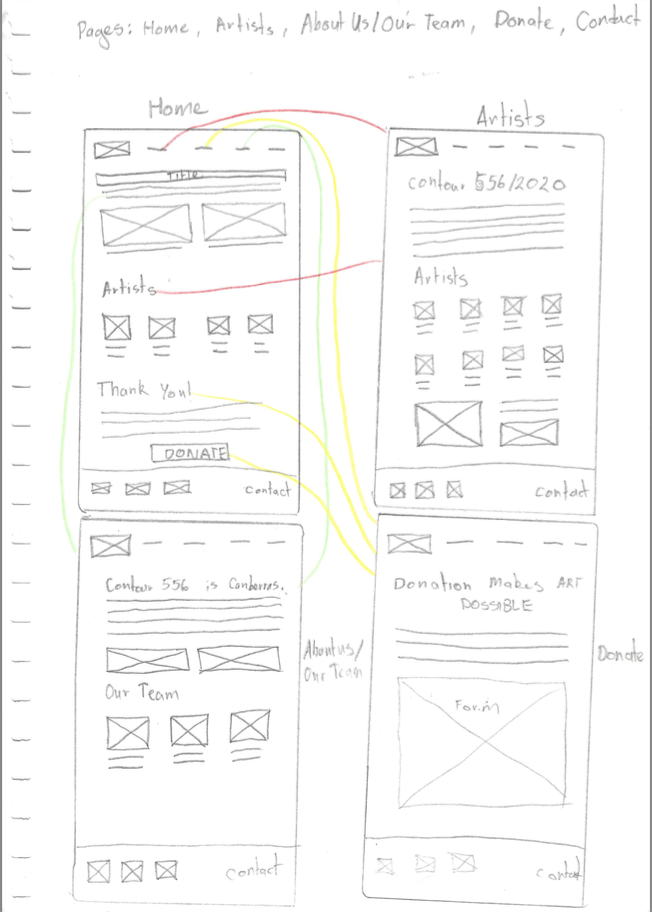 Pages: Home, Artists, About Us/Our Team, Donate, Contact
Home
Title
Artists
Thank You!
DONATE
Contact
Artists
Contour 556/2020
Artists
Contact
Contour 556 is Canberras.
Our Team
Contact
About us/
Our Team
Donation Makes ART
POSSIBLE
Form
Contact
Donate